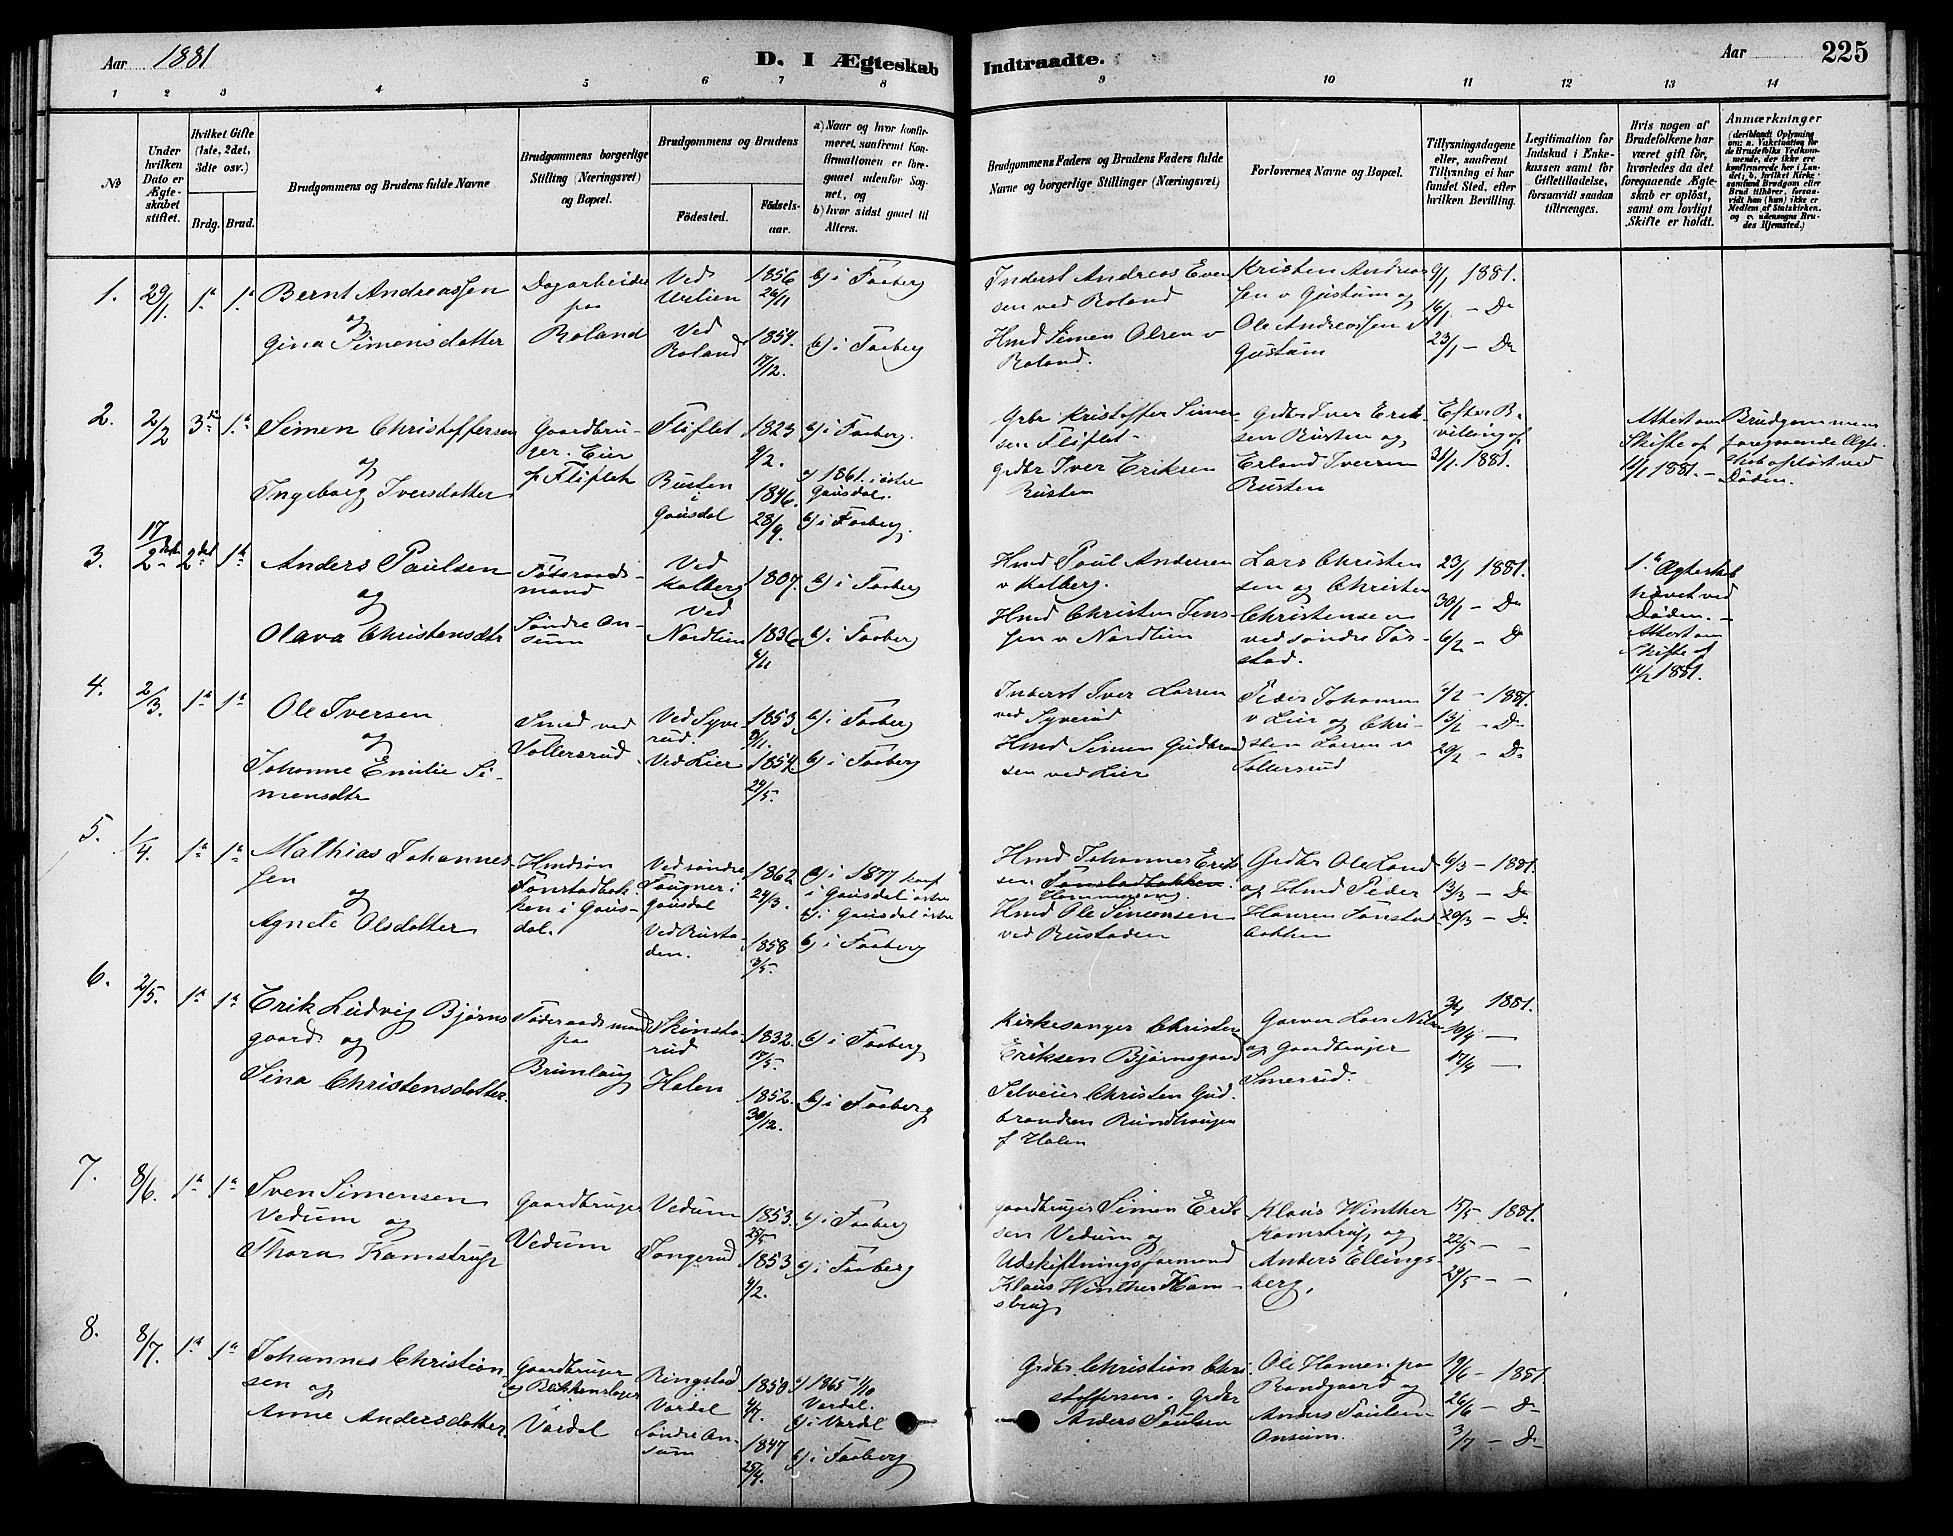 Aar 1881
D. I Ægteskab Indtraadte.
Aar
225
1 2 3 4 5 6 7 8 9 10 11 12 13 14
No
Under hvilken Dato er Ægteskabet stiftet.
Hvilket Gifte (1ste, 2det, 3die osv.)
Brdg. Brud.
Brudgommens og Brudens fulde Navne
Brudgommens borgerlige Stilling (Næringsvei) og Bopæl.
Brudgommens og Brudens
Fødested.
Fødsels-aar.
a) Naar og hvor konfirmeret, saafremt Konfirmationen er foregaaet udenfor Sognet, og
b) hvor sidst gaaet til Alters.
Brudgommens Faders og Brudens Faders fulde Navne og borgerlige Stillinger (Næringsvei)
Forlovernes Navne og Bopæl.
Tillysningsdagene eller, saafremt Tillysning ei har fundet Sted, efter hvilken Bevilling.
Legitimation for Indskud i Enkekassen samt for Giftetilladelse, forsaavidt saadan tiltrænges.
Hvis nogen af Brudefolkene har været gift før, hvorledes da det foregaaende Ægteskab er opløst, samt om lovligt Skifte er holdt.
Anmærkninger
1. 29/1 1ste 1ste Bernt Andreassen
og
Gina Simensdatter
Dagarbeider
paa
Roland
Ved
1856
26/1
Ved
Roland
1854.
17/12.
b) i Faaberg
b) i Faaberg
Inderst Andreas Even
sen ved Roland
Hmd Simen Olsen v
Roland.
Kristen Andreas
sen v Gustum og
Ole Andreassen v
Gustum
9/1 1881.
16/1 - Do
23/1 - Do
2. 2/2 3die 1ste Simen Christoffersen
og
Ingeborg Iversdatter
Gaardbru-
ger. Eier
af Fliflet
Fliflet
1823
9/2.
Rusten
i
Gausdal
1846.
28/9.
b) i Faaberg.
a) 1861. i østre
Gausdal.
b) i Faaberg.
Grbr Kristoffer Simen
sen Fliflet-
Grdbr Iver Eriksen
Rusten
Grdbr Iver Erik-
sen Rusten og
Erland Iversen
Rusten
Efter Be-
villing af
31/1. 1881.
Attest om
Skifte af
11/1 1881. -
Brudgommens
foregaaende Ægte-
skab opløst ved
Døden.
3. 17/2 2det 1ste Anders Paulsen
og
Olava Christensdtr
Føderaads-
mand
Søndre An-
sum
Ved
Kalberg
1807.
Ved
Nordlien
1836
4/11
b) i Faaberg
b) i Faaberg
Hmd Paul Andersen
v Kalberg.
Hmd Christen Jens-
sen v Nordlien
Lars Christen
sen og Christen
Christensen
ved søndre Jør-
stad.
23/1 1881.
30/1 - Do
6/2 - D
1ste Ægteskab
hævet ved
Døden. -
Attest om
Skifte af
11/2 1881.
4. 2/3. 1ste 1ste Ole Iversen
og
Johanne Emilie Si-
mensdtr
Smed ved
Sollersrud
Ved Syve-
rud.
1853
9/11.
Ved Lier
1854.
24/5.
b) i Faaberg
b) i Faaberg
Inderst Iver Larsen
ved Syverud
Hmd Simen Gudbrand
sen ved Lier
Peder Johansen
v Lier og Chri-
sten Larsen v
Sollersrud
6/2 - 1881.
13/2 - Do
20/2 - Do
5. 1/4. 1ste 1ste Mathias Johannes-
sen
og
Agnete Olsdatter
Hmdsøn
Fonstadbak-
ken i Gaus-
dal.
Ved søndre
Fougner i
Gausdal
1862
24/3.
Ved Rusta-
den.
1858
3/5.
a) i 1877 konf
i Gausdal østre
b) i Gausdal østre
b) i Faaberg
Hmd Johannes Erik-
sen Fonstadbakken.
Hmd Ole Simensen
ved Rustaden
Grdbr Ole Lond
og Hmd Peder
Hansen Fonstad
bakken
6/3 - 1881.
13/3 - Do
20/3 - Do
6. 2/5. 1ste 1ste Erik Ludvig Bjørns
gaard og
Sina Christensdatter.
Føderaadsmand
paa
Brunlaug
Skinsta-
rud
1832.
17/5.
Holen
1852.
30/12.
b) i Faaberg
b) i Faaberg
Kirkesanger Christen
Eriksen Bjørnsgaard
Selveier Christen Gud-
brandsen Rundhaugen
af Holen
Garver Lars Nilsen
og Gaardbruger
Smerrud.
3/4 1881.
10/4 -
17/4 -
7. 8/6. 1ste 1ste Sven Simensen
Vedum og
Thora Kamstrup
Gaardbruger
Vedum
Vedum
1853.
25/5.
Songerud
1853
4/2.
b) i Faaberg
b) i Faaberg
Gaardbruger Simen Erik
sen Vedum og
Udskiftningsformand
Klaus Winther Kam-
strup
Klaus Winther
Kamstrup og
Anders Ellings-
berg,
15/5 1881.
22/5 - -
29/5 - -
8. 8/7. 1ste 1ste Johannes Christian
sen
og
Anne Andersdatter.
Gaardbruger
Vardal
Ringstad
Vardal
1850
4/7.
Søndre An-
sum
1847
25/4.
a) 1865 1/10
Vardal.
b) i Vardal
b) i Faaberg
Grdbr. Christian Chri-
stoffersen. Grdbr
Anders Paulsen
Ole Hansen paa
Randgaard og
Anders Paulsen
Ansum.
19/6 - 1881.
26/6 - Do
3/7 - Do